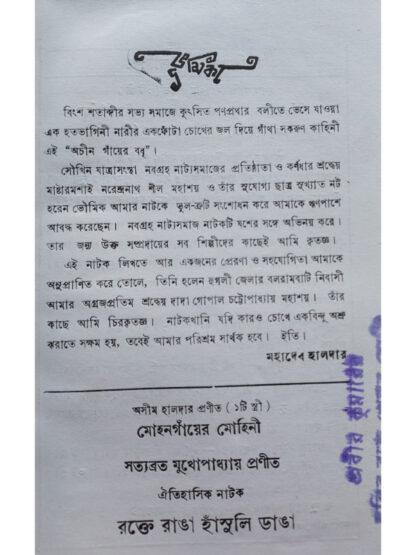 ভূমিকা
বিংশ শতাব্দীর সভ্য সমাজে কুৎসিত পণপ্রথার বলীতে ভেসে যাওয়া
এক হতভাগিনী নারীর একফোঁটা চোখের জল দিয়ে গাঁথা সকরুণ কাহিনী
এই “অচীন গাঁয়ের বধূ”।
সৌখিন যাত্রাসংস্থা নবগ্রহ নাট্যসমাজের প্রতিষ্ঠাতা ও কর্ণধার শ্রদ্ধেয়
মাষ্টারমশাই নরেন্দ্রনাথ শীল মহাশয় ও তাঁর সুযোগ্য ছাত্র সুখ্যাত নট
হরেন ভৌমিক আমার নাটকে ভুল-ত্রুটি সংশোধন করে আমাকে ঋণপাশে
আবদ্ধ করেছেন। নবগ্রহ নাট্যসমাজ নাটকটি যশের সঙ্গে অভিনয় করে।
তার জন্য উক্ত সম্প্রদায়ের সব শিল্পীদের কাছেই আমি কৃতজ্ঞ।
এই নাটক লিখতে আর একজনের প্রেরণা ও সহযোগিতা আমাকে
অনুপ্রাণিত করে তোলে, তিনি হলেন হুগলী জেলার বলরামবাটি নিবাসী
আমার অগ্রজপ্রতিম শ্রদ্ধেয় দাদা গোপাল চট্টোপাধ্যায় মহাশয়। তাঁর
কাছে আমি চিরকৃতজ্ঞ। নাটকখানি যদি কারও চোখে একবিন্দু অশ্রু
ঝরাতে সক্ষম হয়, তবেই আমার পরিশ্রম সার্থক হবে। ইতি।
মহাদেব হালদার
অসীম হালদার প্রণীত (১টি স্ত্রী)
মোহনগাঁয়ের মোহিনী
সত্যব্রত মুখোপাধ্যায় প্রণীত
ঐতিহাসিক নাটক
রক্তে রাঙা হাঁসুলি ডাঙা